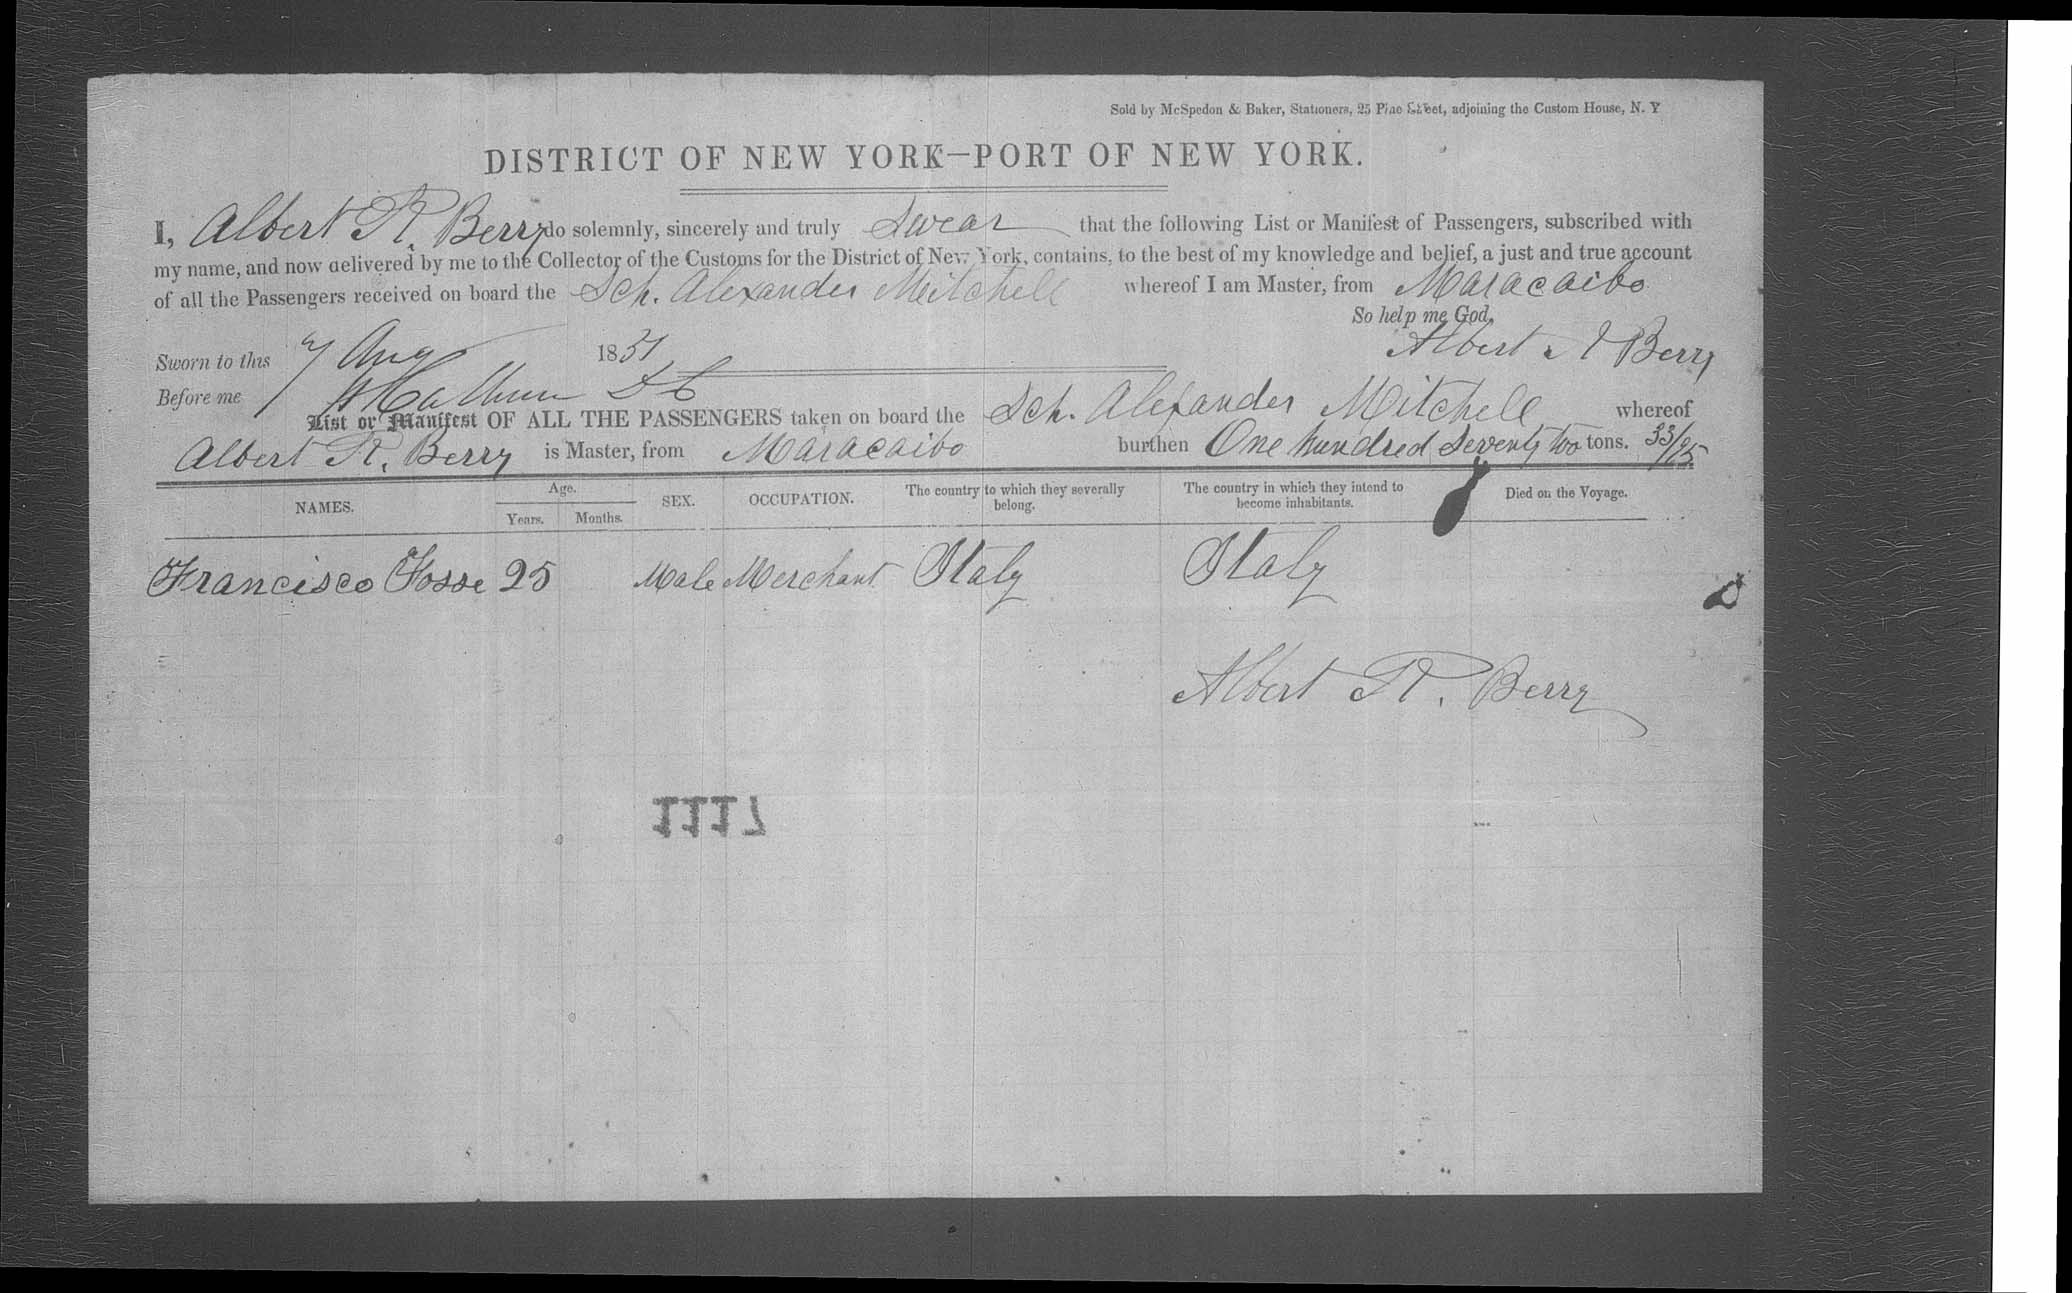 Sold by McSpedon & Baker, Stationers, 25 Pine Street, adjoining the Custom House, N. Y
DISTRICT OF NEW YORK—PORT OF NEW YORK.
I, Albert R. Berry do solemnly, sincerely and truly Swear that the following List or Manifest of Passengers, subscribed with
my name, and now delivered by me to the Collector of the Customs for the District of New York, contains, to the best of my knowledge and belief, a just and true account
of all the Passengers received on board the Sch. Alexander Mitchell whereof I am Master, from Maracaibo
So help me God.
Sworn to this 7 Aug 1851 Albert R Berry
Before me
List or Manifest OF ALL THE PASSENGERS taken on board the Sch. Alexander Mitchell whereof
Albert R. Berry is Master, from Maracaibo burthen One hundred Seventy two tons. 33/95
NAMES. Age. Years. Months. SEX. OCCUPATION. The country to which they severally belong. The country in which they intend to become inhabitants. Died on the Voyage.
Francisco Fosse 25 Male Merchant Italy Italy
Albert R. Berry
1117